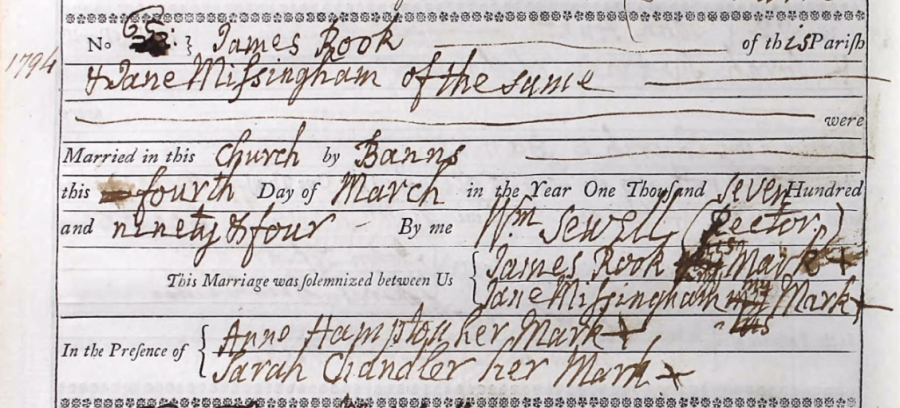 1794
No 63: } James Rook of thisParish
& Jane Missingham of the same
were
Married in this Church by Banns
this fourth Day of March in the Year One Thousand seven Hundred
and ninety & four By me Wm Sewell (Rector)
This Marriage was solemnized between Us { James Rook his Mark +
Jane Missingham my Mark +
his
In the Presence of { Anne her Mark +
Sarah Chandler her Mark +